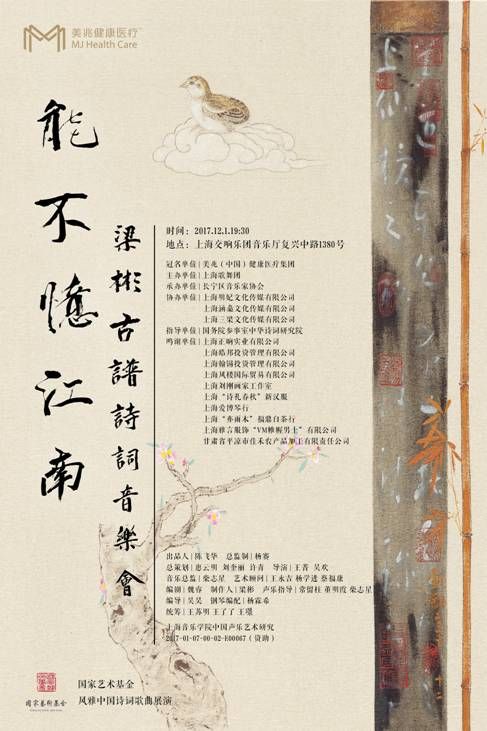 美兆健康医疗™
MJ Health Care
能不憶江南
梁彬古譜詩詞音樂會
时间：2017.12.1.19:30
地点：上海交响乐团音乐厅复兴中路1380号
冠名单位|美兆（中国）健康医疗集团
主办单位|上海歌舞团
承办单位|长宁区音乐家协会
协办单位|上海明妃文化传媒有限公司
上海涵蕴文化传媒有限公司
上海三梁文化传媒有限公司
指导单位|国务院参事室中华诗词研究院
鸣谢单位|上海正响实业有限公司
上海皓邦投资管理有限公司
上海翰锡投资管理有限公司
上海凤楼国际贸易有限公司
上海刘刚画家工作室
上海“诗礼春秋”新汉服
上海爱博琴行
上海“乔雨木”福鼎白茶行
上海雅言服饰“VM帷幄男士”有限公司
甘肃省平凉市佳禾农产品加工有限责任公司
出品人|陈飞华 总监制|杨赛
总策划|惠云明 刘奎丽 许青 导演|王菁 吴欢
音乐总监|柴志星 艺术顾问|王永吉 杨学进 蔡福康
编剧|魏睿 制作人|梁彬 声乐指导|常留柱 董明霞 柴志星
编导|吴昊 钢琴编配|杨霖希
统筹|王苏明 王了了 王璎
上海音乐学院中国声乐艺术研究
2017-01-07-00-02-E00067（资助）
國家藝術基金
国家艺术基金
风雅中国诗词歌曲展演